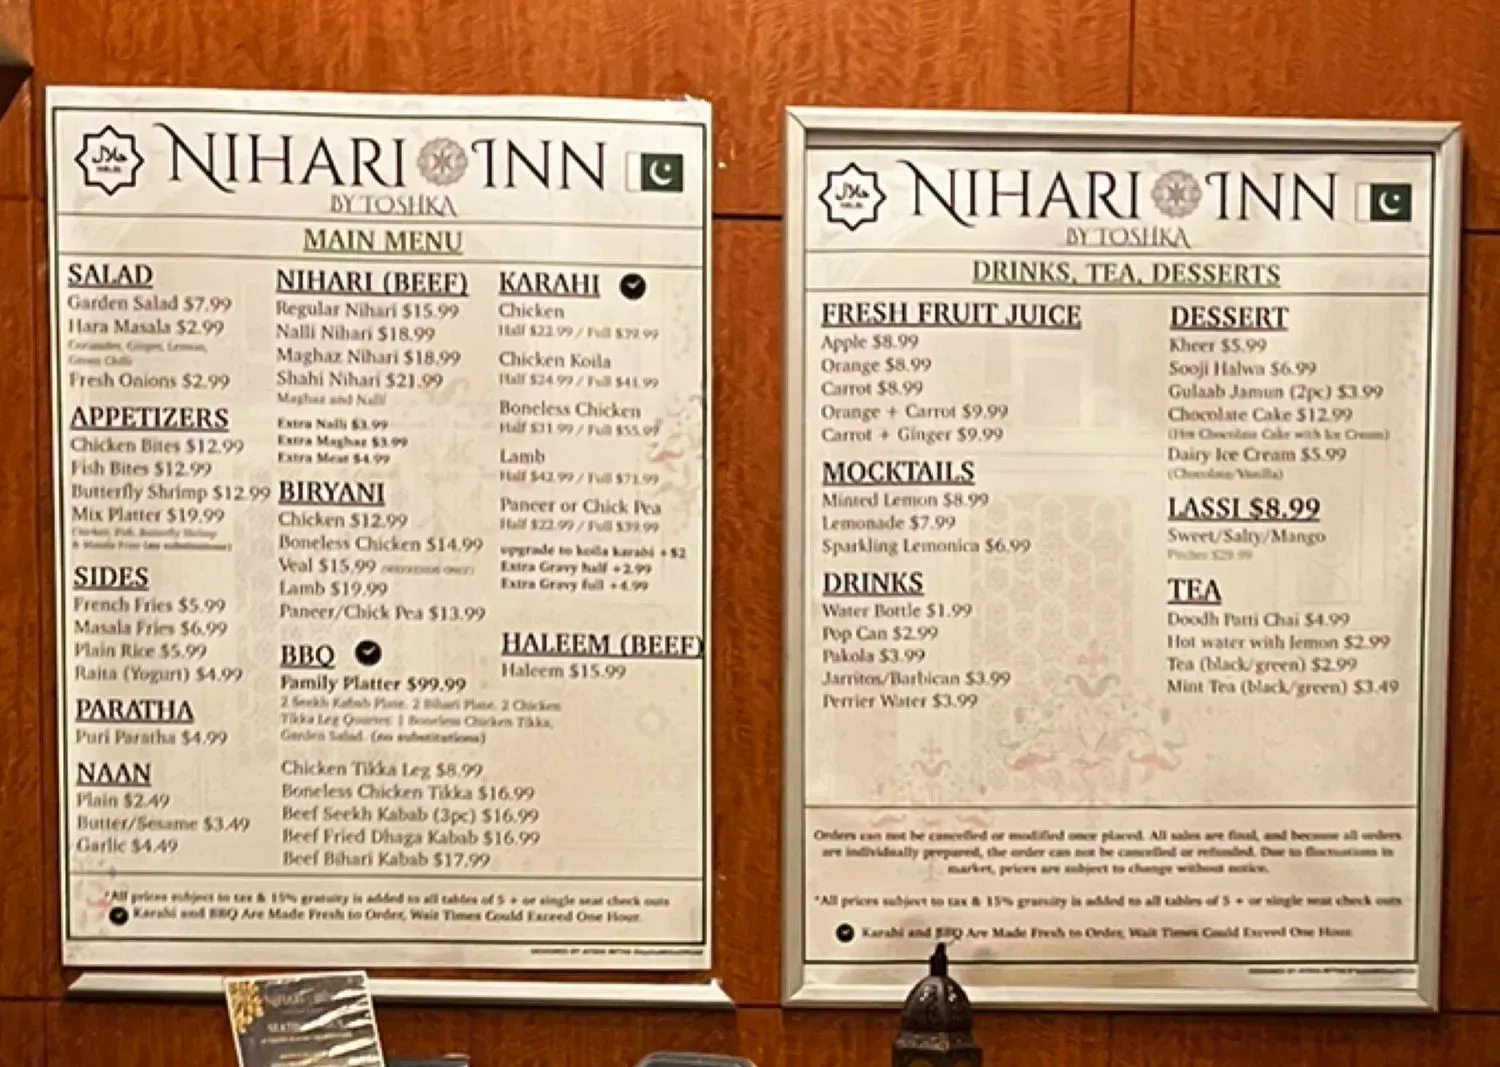 حلال
HALAL
NIHARI INN
BY TOSHKA
MAIN MENU
SALAD
Garden Salad $7.99
Hara Masala $2.99
Coriander, Ginger, Lemon,
Green Chilli
Fresh Onions $2.99
APPETIZERS
Chicken Bites $12.99
Fish Bites $12.99
Butterfly Shrimp $12.99
Mix Platter $19.99
Chicken, Fish, Butterfly Shrimp
& Masala Fries (no substitutions)
SIDES
French Fries $5.99
Masala Fries $6.99
Plain Rice $5.99
Raita (Yogurt) $4.99
PARATHA
Puri Paratha $4.99
NAAN
Plain $2.49
Butter/Sesame $3.49
Garlic $4.49
NIHARI (BEEF)
Regular Nihari $15.99
Nalli Nihari $18.99
Maghaz Nihari $18.99
Shahi Nihari $21.99
Maghaz and Nalli
Extra Nalli $3.99
Extra Maghaz $3.99
Extra Meat $4.99
BIRYANI
Chicken $12.99
Boneless Chicken $14.99
Veal $15.99 (WEEKENDS ONLY)
Lamb $19.99
Paneer/Chick Pea $13.99
BBQ
Family Platter $99.99
2 Seekh Kabab Plate, 2 Bihari Plate, 2 Chicken
Tikka Leg Quarter, 1 Boneless Chicken Tikka,
Garden Salad. (no substitutions)
Chicken Tikka Leg $8.99
Boneless Chicken Tikka $16.99
Beef Seekh Kabab (3pc) $16.99
Beef Fried Dhaga Kabab $16.99
Beef Bihari Kabab $17.99
KARAHI
Chicken
Half $22.99 / Full $39.99
Chicken Koila
Half $24.99 / Full $41.99
Boneless Chicken
Half $31.99 / Full $55.99
Lamb
Half $42.99 / Full $71.99
Paneer or Chick Pea
Half $22.99 / Full $39.99
upgrade to koila karahi + $2
Extra Gravy half +2.99
Extra Gravy full +4.99
HALEEM (BEEF)
Haleem $15.99
*All prices subject to tax & 15% gratuity is added to all tables of 5 + or single seat check outs
Karahi and BBQ Are Made Fresh to Order, Wait Times Could Exceed One Hour.
حلال
HALAL
NIHARI INN
BY TOSHKA
DRINKS, TEA, DESSERTS
FRESH FRUIT JUICE
Apple $8.99
Orange $8.99
Carrot $8.99
Orange + Carrot $9.99
Carrot + Ginger $9.99
MOCKTAILS
Minted Lemon $8.99
Lemonade $7.99
Sparkling Lemonica $6.99
DRINKS
Water Bottle $1.99
Pop Can $2.99
Pakola $3.99
Jarritos/Barbican $3.99
Perrier Water $3.99
DESSERT
Kheer $5.99
Sooji Halwa $6.99
Gulaab Jamun (2pc) $3.99
Chocolate Cake $12.99
(Hot Chocolate Cake with Ice Cream)
Dairy Ice Cream $5.99
(Chocolate/Vanilla)
LASSI $8.99
Sweet/Salty/Mango
Pitcher $29.99
TEA
Doodh Patti Chai $4.99
Hot water with lemon $2.99
Tea (black/green) $2.99
Mint Tea (black/green) $3.49
Orders can not be cancelled or modified once placed. All sales are final, and because all orders
are individually prepared, the order can not be cancelled or refunded. Due to fluctuations in
market, prices are subject to change without notice.
*All prices subject to tax & 15% gratuity is added to all tables of 5 + or single seat check outs
Karahi and BBQ Are Made Fresh to Order, Wait Times Could Exceed One Hour.
NIHARI INN